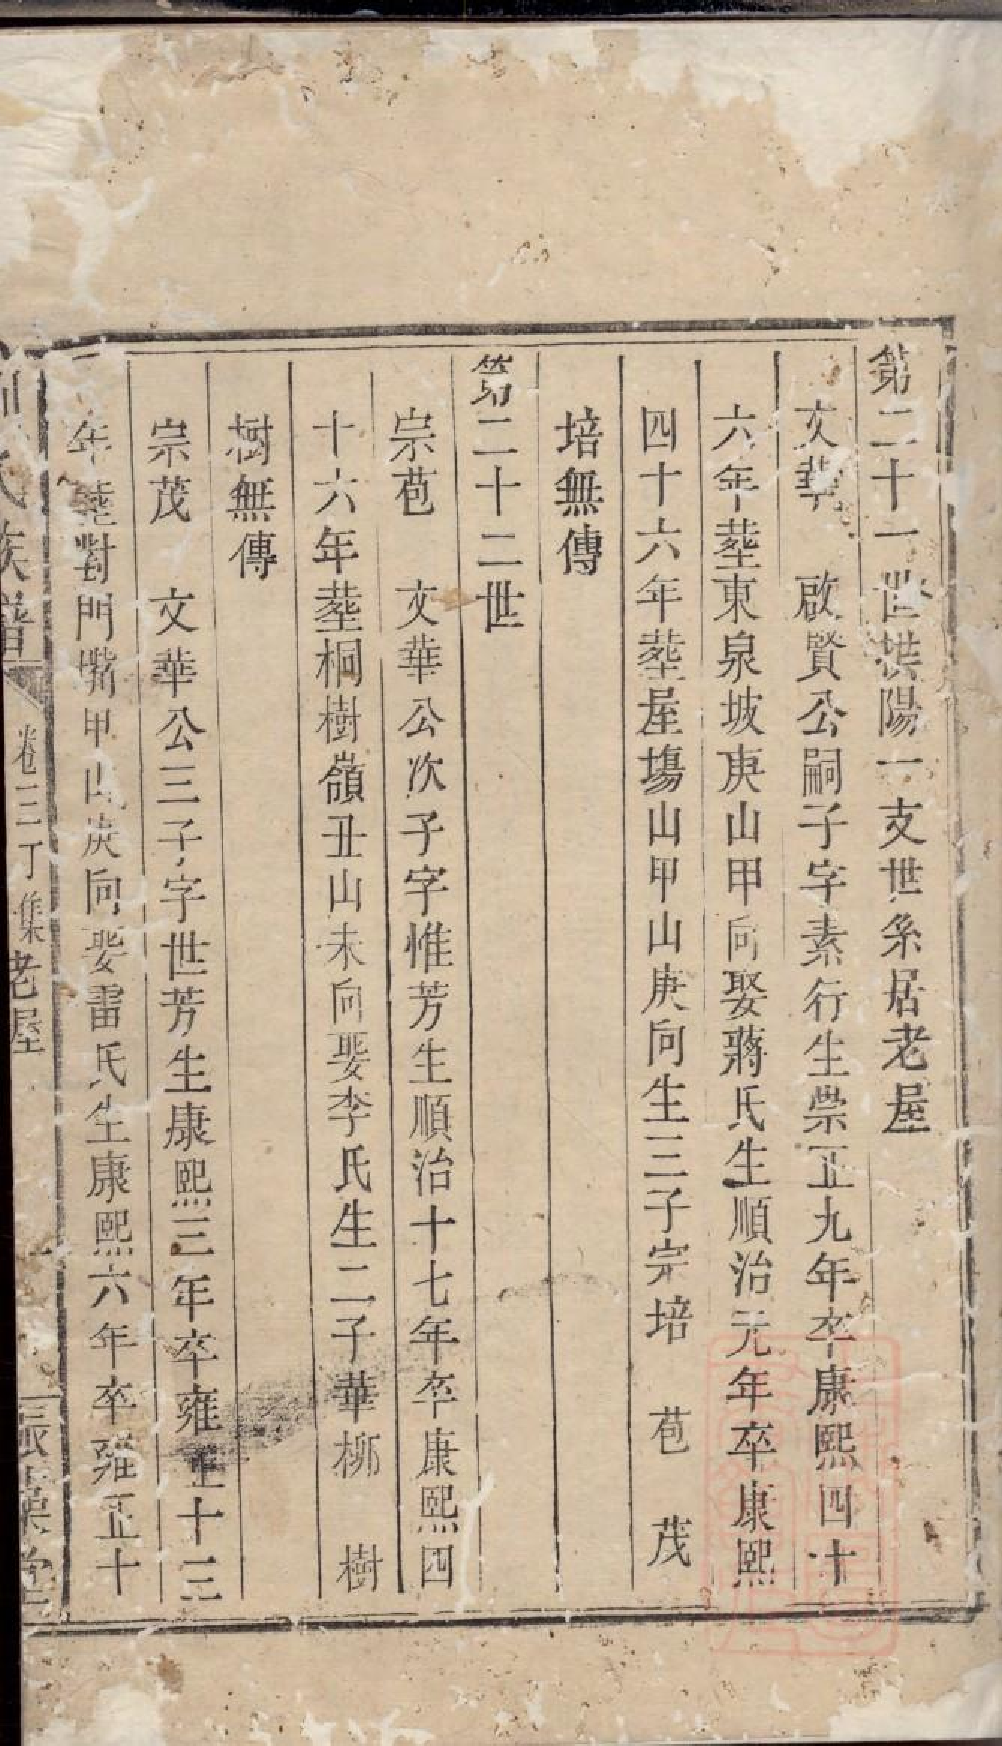 第二十一世拱陽一支世系居老屋
文華　啟賢公嗣子字素行生崇正九年卒康熙四十
六年塟東泉坡庚山甲向娶蔣氏生順治元年卒康熙
四十六年塟屋塲山甲山庚向生三子宗培　苞　茂
培無傳
第二十二世
宗苞　文華公次子字惟芳生順治十七年卒康熙四
十六年塟桐樹嶺丑山未向娶李氏生二子華栁　樹
樹無傳
宗茂　文華公三子字世芳生康熙三年卒雍正十三
年塟對門嘴甲山庚向娶雷氏生康熙六年卒雍正十
氏族譜　卷三丁集老屋　一